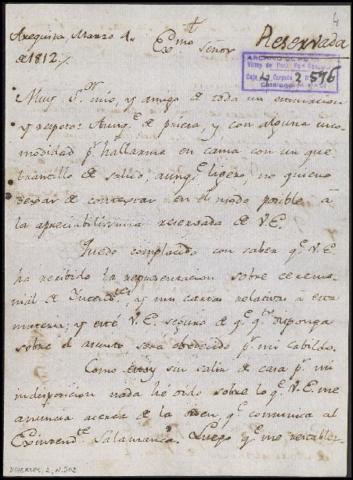 Arequipa Marzo 4 Exmo Señor Reservada
de 1812.
ARCHIVO
Caja Carpeta 2.576
Muy Sor mio, y amigo de toda mi estimacion
y respeto: Aunqe de priesa, y con alguna inco-
modidad pr hallarme en cama con un que-
brantillo de salud, aunqe ligero, no quiero
dexar de contestar en el modo posible à
la apreciabilisima reservada de V.E.
Quedo complacido con saber qe V.E.
ha recibido la representacion sobre ceremo-
nial de Intendtes y mis cartas relativas à esta
materia; y esté V.E. seguro de qe qto disponga
sobre el asunto será obedecido pr mi Cabildo.
Como estoy sin salir de casa pr mi
indisposicion nada hé oido sobre lo qe V.E. me
anuncia acerca de la orden qe comunica al
Exintendte Salamanca. Luego qe me restablez-
DIVERSOS, 2, N.502